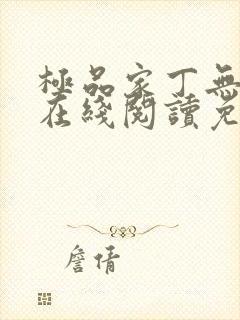 極品家丁無
在綫閱讀免
詹倩